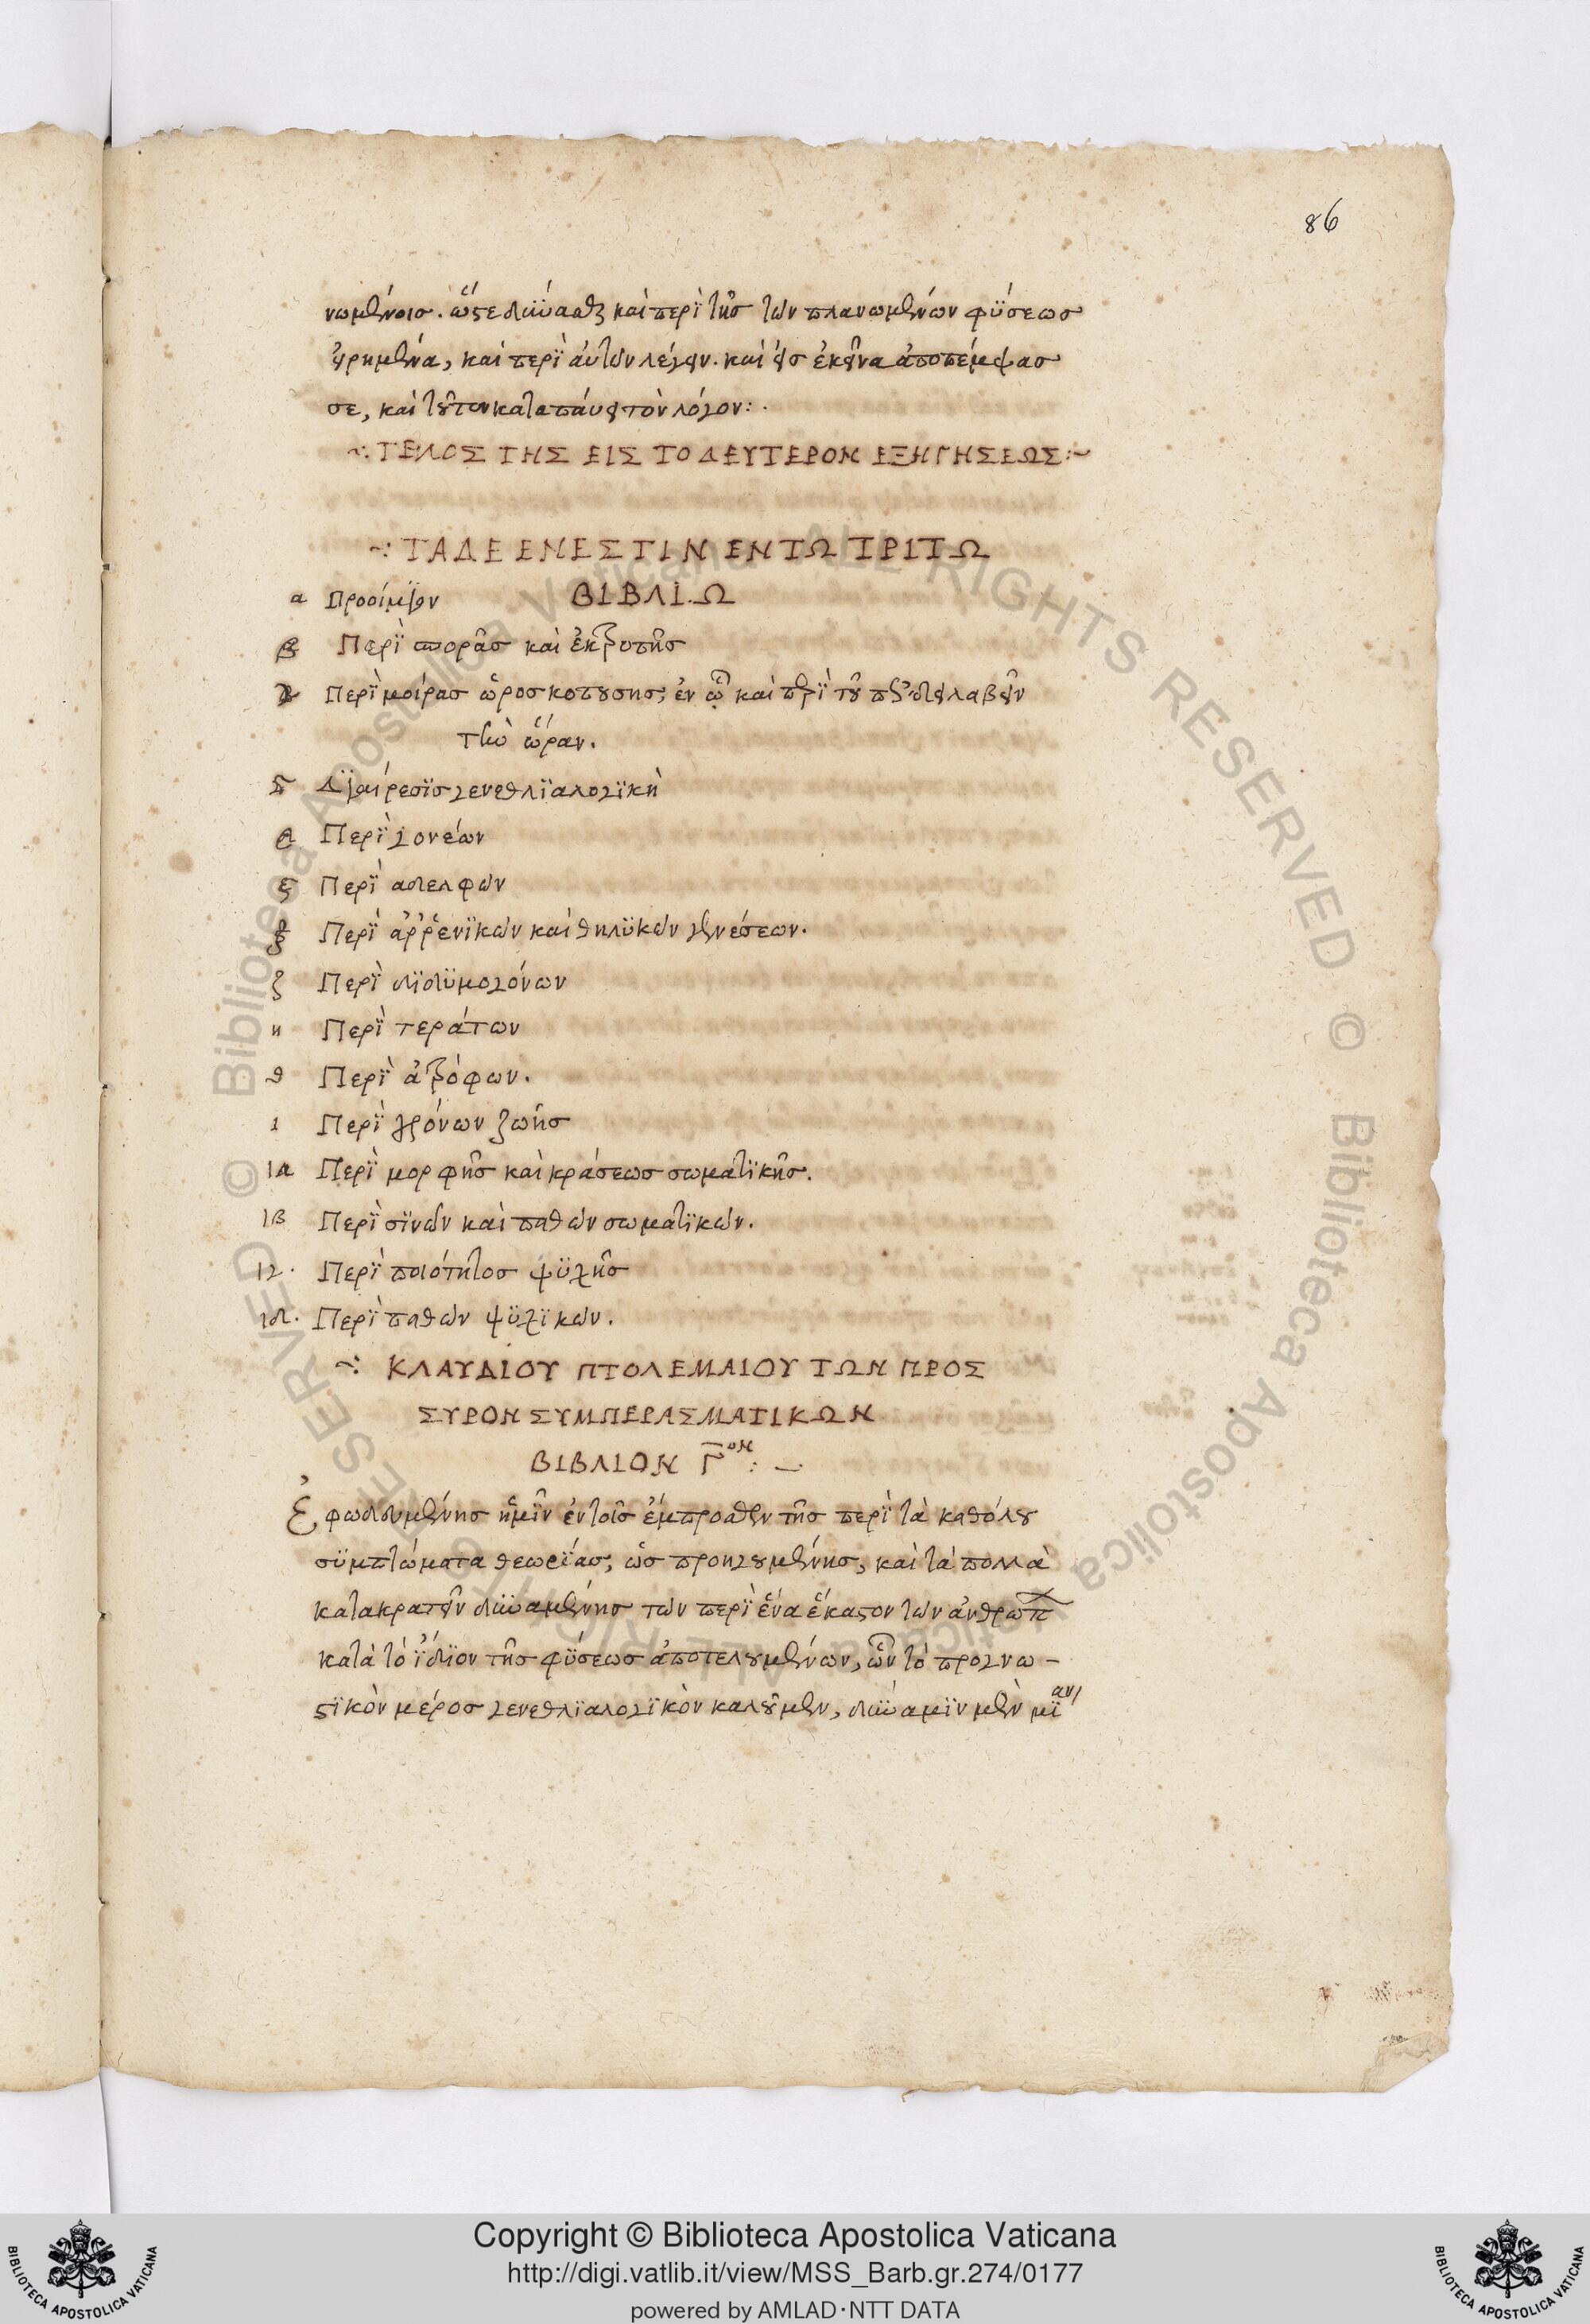 86
νωμένοις. ὥστε δύνασθαι καὶ περὶ τῆς τῶν πλανωμένων φύσεως
εἰρημένα, καὶ περὶ αὐτῶν λέγειν. καὶ εἰς ἐκεῖνα ἀποπέμψας
σε, καὶ τοῦτον καταπάυει τὸν λόγον:.
~:ΤΕΛΟΣ ΤΗΣ ΕΙΣ ΤΟ ΔΕΥΤΕΡΟΝ ΕΞΗΓΗΣΕΩΣ:~
~: ΤΑΔΕ ΕΝΕΣΤΙΝ ΕΝ ΤΩ ΤΡΙΤΩ
ΒΙΒΛΙΩ
α Προοίμϊον
β Περὶ σπορᾶς καὶ ἐκτροπῆς
Περὶ μοίρας ὡροσκοπούσης, ἐν ᾧ καὶ περὶ τοῦ πῶς δεῖ λαβεῖν
τὴν ὥραν.
Δϊαίρεσϊς γενεθλϊαλογϊκὴ
Περὶ γονέων
Περὶ αδελφῶν
Περὶ ἀῤῥενϊκῶν καὶ θηλϋκῶν γενέσεων.
ζ Περὶ δϊδϋμογόνων
η Περὶ τεράτων
θ Περὶ ἀτρόφων.
ι Περὶ χρόνων ζωῆς
ια Περὶ μορφῆς καὶ κράσεως σωματϊκῆς.
ιβ Περὶ σϊνῶν καὶ παθῶν σωματϊκῶν.
ιγ. Περὶ ποιότητος ψϋχῆς
ιδ. Περὶ παθῶν ψϋχϊκῶν.
~: ΚΛΑΥΔΙΟΥ ΠΤΟΛΕΜΑΙΟΥ ΤΩΝ ΠΡΟΣ
ΣΥΡΟΝ ΣΥΜΠΕΡΑΣΜΑΤΙΚΩΝ
ΒΙΒΛΙΟΝ Γ̅ον:~
Ἐφωδευμένης ἡμῖν ἐν τοῖς ἔμπροσθεν τῆς περὶ τὰ καθόλου
σϋμπτώματα θεωρϊας, ὡς προηγουμένης, καὶ τὰ πολλὰ
κατακρατεῖν δυναμένης τῶν περὶ ἕνα ἕκαστον τῶν ἀνθρώπ
κατὰ τὸ ἴδϊον τῆς φύσεως ἀποτελουμένων, ὧν τὸ προγνω-
στϊκὸν μέρος γενεθλϊαλογϊκὸν καλοῦμεν, δύναμϊν μὲν μίαν
Copyright © Biblioteca Apostolica Vaticana
http://digi.vatlib.it/view/MSS_Barb.gr.274/0177
powered by AMLAD·NTT DATA
© Biblioteca Apostolica Vaticana ALL RIGHTS RESERVED
© Biblioteca Apostolica Vaticana ALL RIGHTS RESERVED
BIBLIOTECA APOSTOLICA VATICANA
BIBLIOTECA APOSTOLICA VATICANA